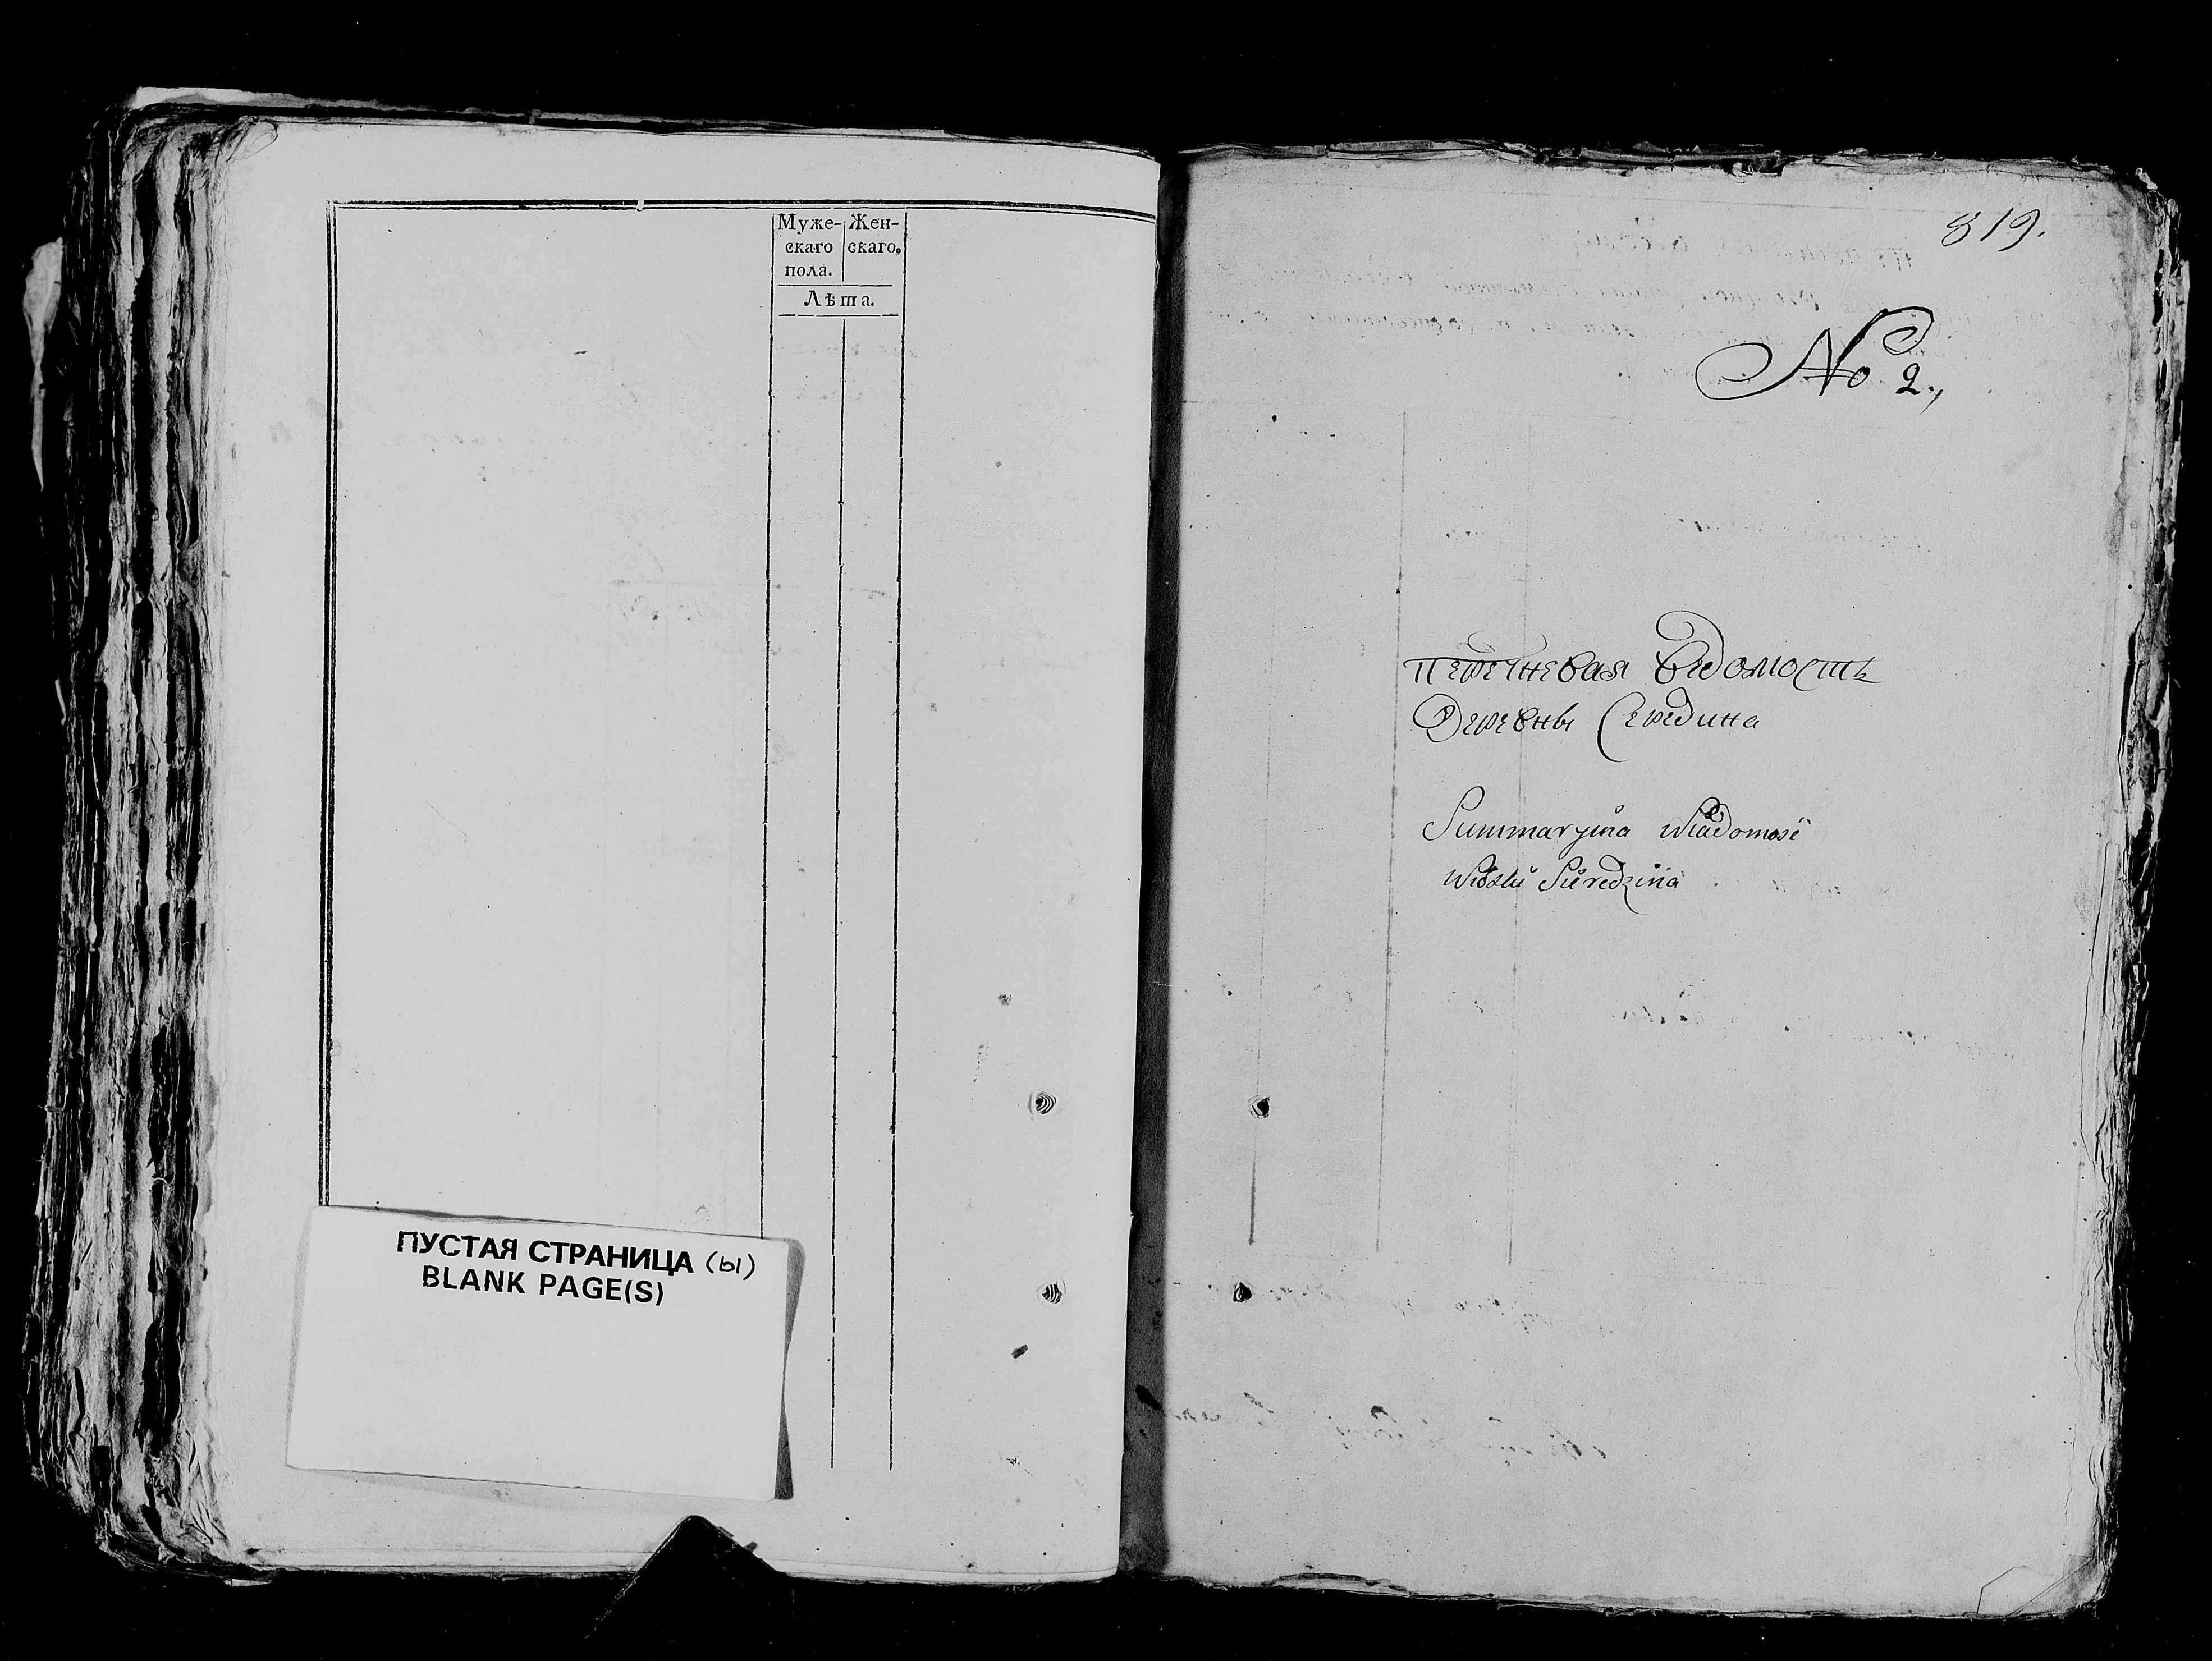 Муже- Жен-
скаго скаго,
пола.
Лѣта.
ПУСТАЯ СТРАНИЦА (ы)
BLANK PAGE(S)
819.
No 2.,
Перечневая Ведомость
Деревны Середина
Summaryina Wiadomość
Sieredzina